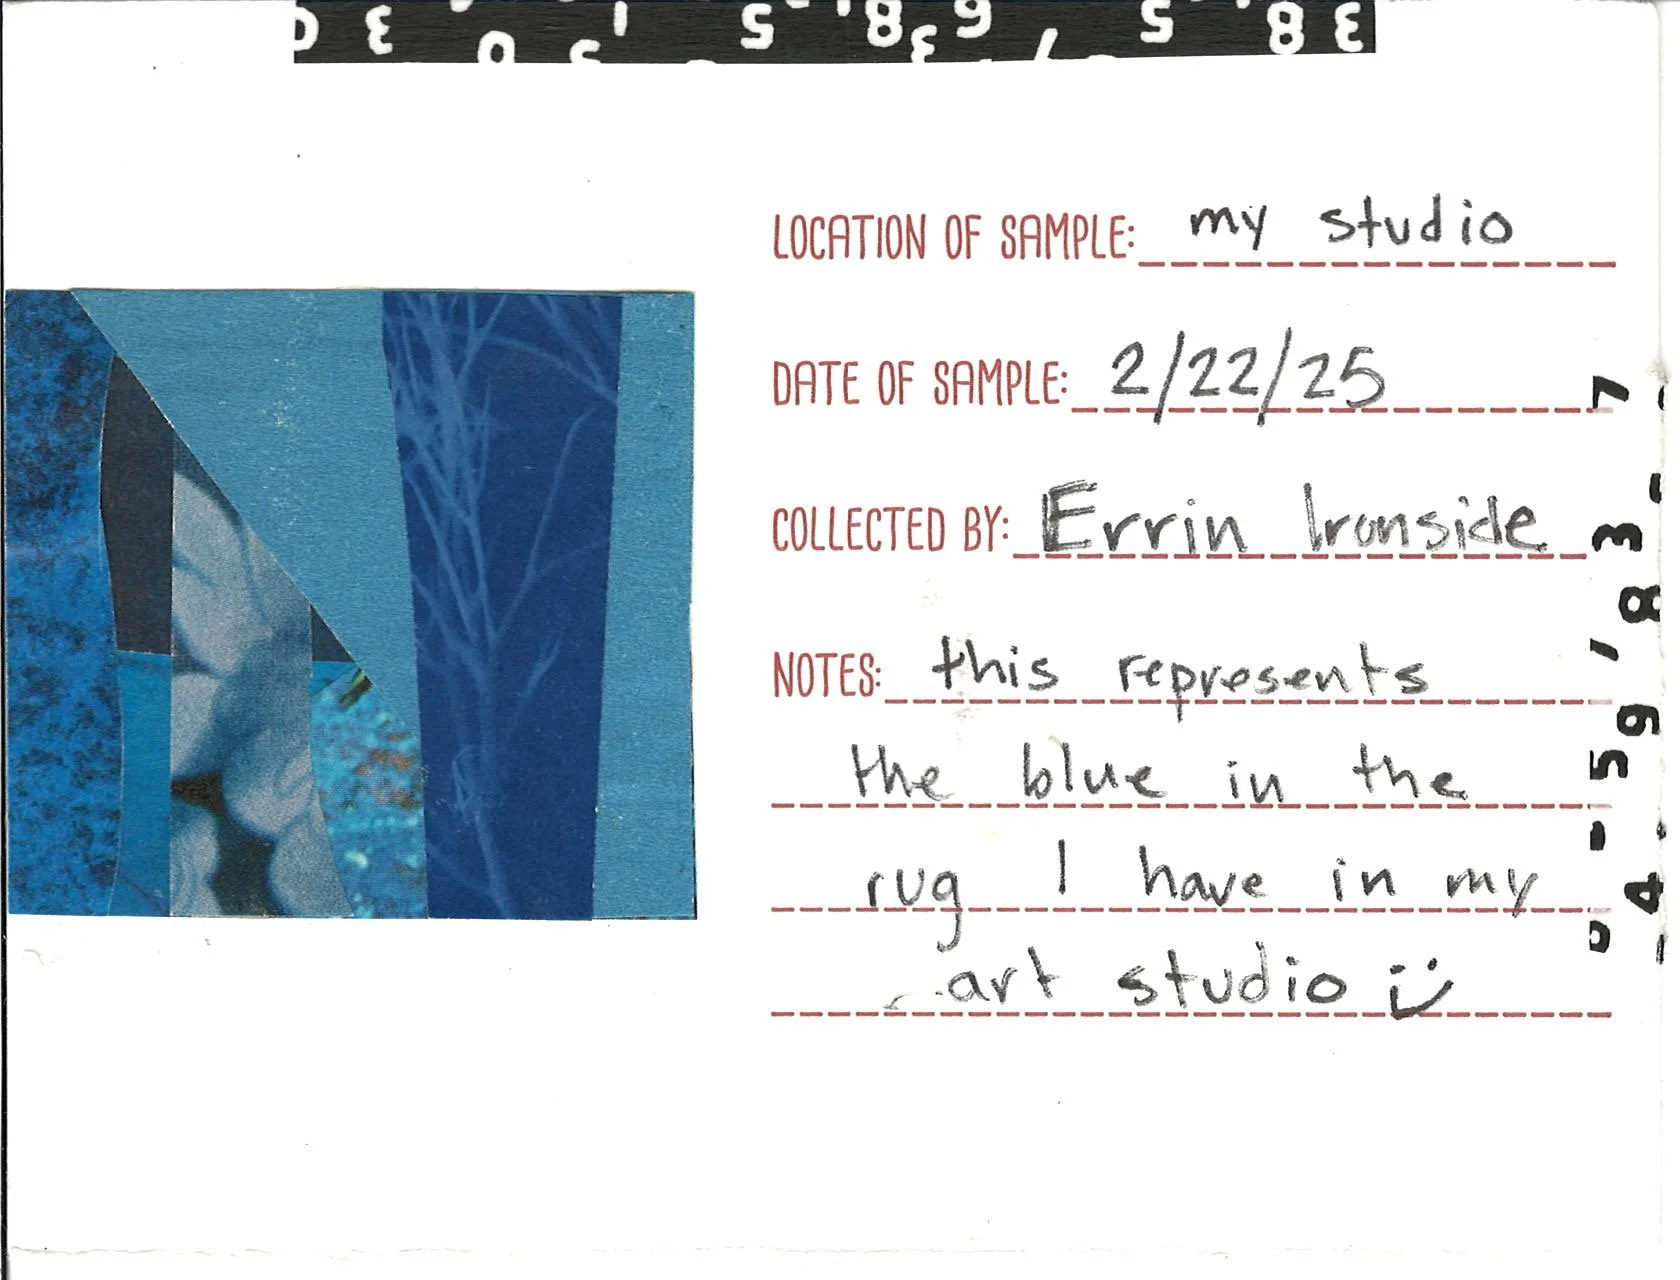 LOCATION OF SAMPLE: my studio
DATE OF SAMPLE: 2/22/25
COLLECTED BY: Errin Ironside
NOTES: this represents
the blue in the
rug I have in my
art studio